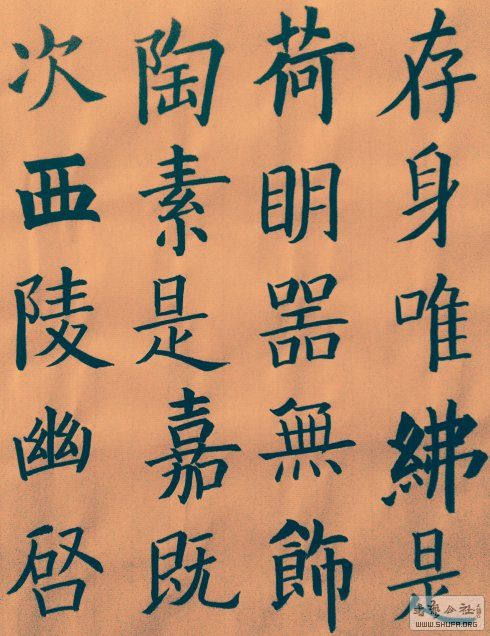 存身唯紼是
荷眀器無飾
陶素是嘉既
次西陵幽启
書藝公社
WWW.SHUFA.ORG